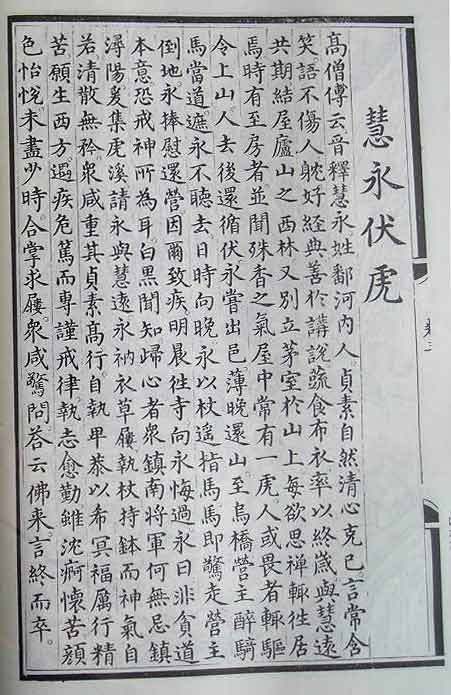 慧永伏虎
高僧傳云晉釋慧永姓鄱河內人貞素自然清心克己言常含
笑語不傷人躭好經典善於講說蔬食布衣率以終歲與慧遠
共期結屋廬山之西林又別立茅室於山上每欲思禪輒徃居
焉時有至房者並聞殊香之氣屋中常有一虎人或畏者輒驅
令上山人去後還循伏永嘗出邑薄晚還山至烏橋營主醉騎
馬當道遮永不聽去日時向晚永以杖遙指馬馬即驚走營主
倒地永捧慰還營因爾致疾明晨徃寺向永悔過永曰非貧道
本意恐戒神所為耳白黑聞知歸心者眾鎮南將軍何無忌鎮
潯陽爰集虎溪請永與慧遠永衲衣草屨執杖持鉢而神氣自
若清散無衿眾咸重其貞素高行自執卑恭以希冥福厲行精
苦願生西方遇疾危篤而專謹戒律執志愈勤雖沈痾懷苦顏
色怡悅未盡少時合掌求屨眾咸驚問答云佛來言終而卒。